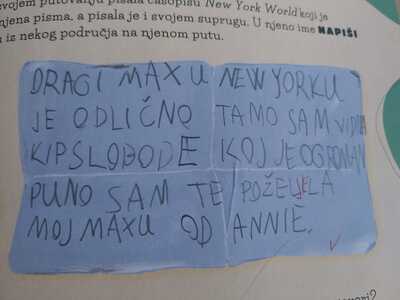 svojem putovanju pisala časopisu New York World koji je
njena pisma, a pisala je i svojem suprugu. U njeno ime NAPIŠI
iz nekog područja na njenom putu.
DRAGI MAX U NEW YORKU
JE ODLIČNO TAMO SAM VIDILA
KIP SLOBODE KOJ JE OGROMAN
PUNO SAM TE POŽELJELA
MOJ MAXU OD ANNIE.